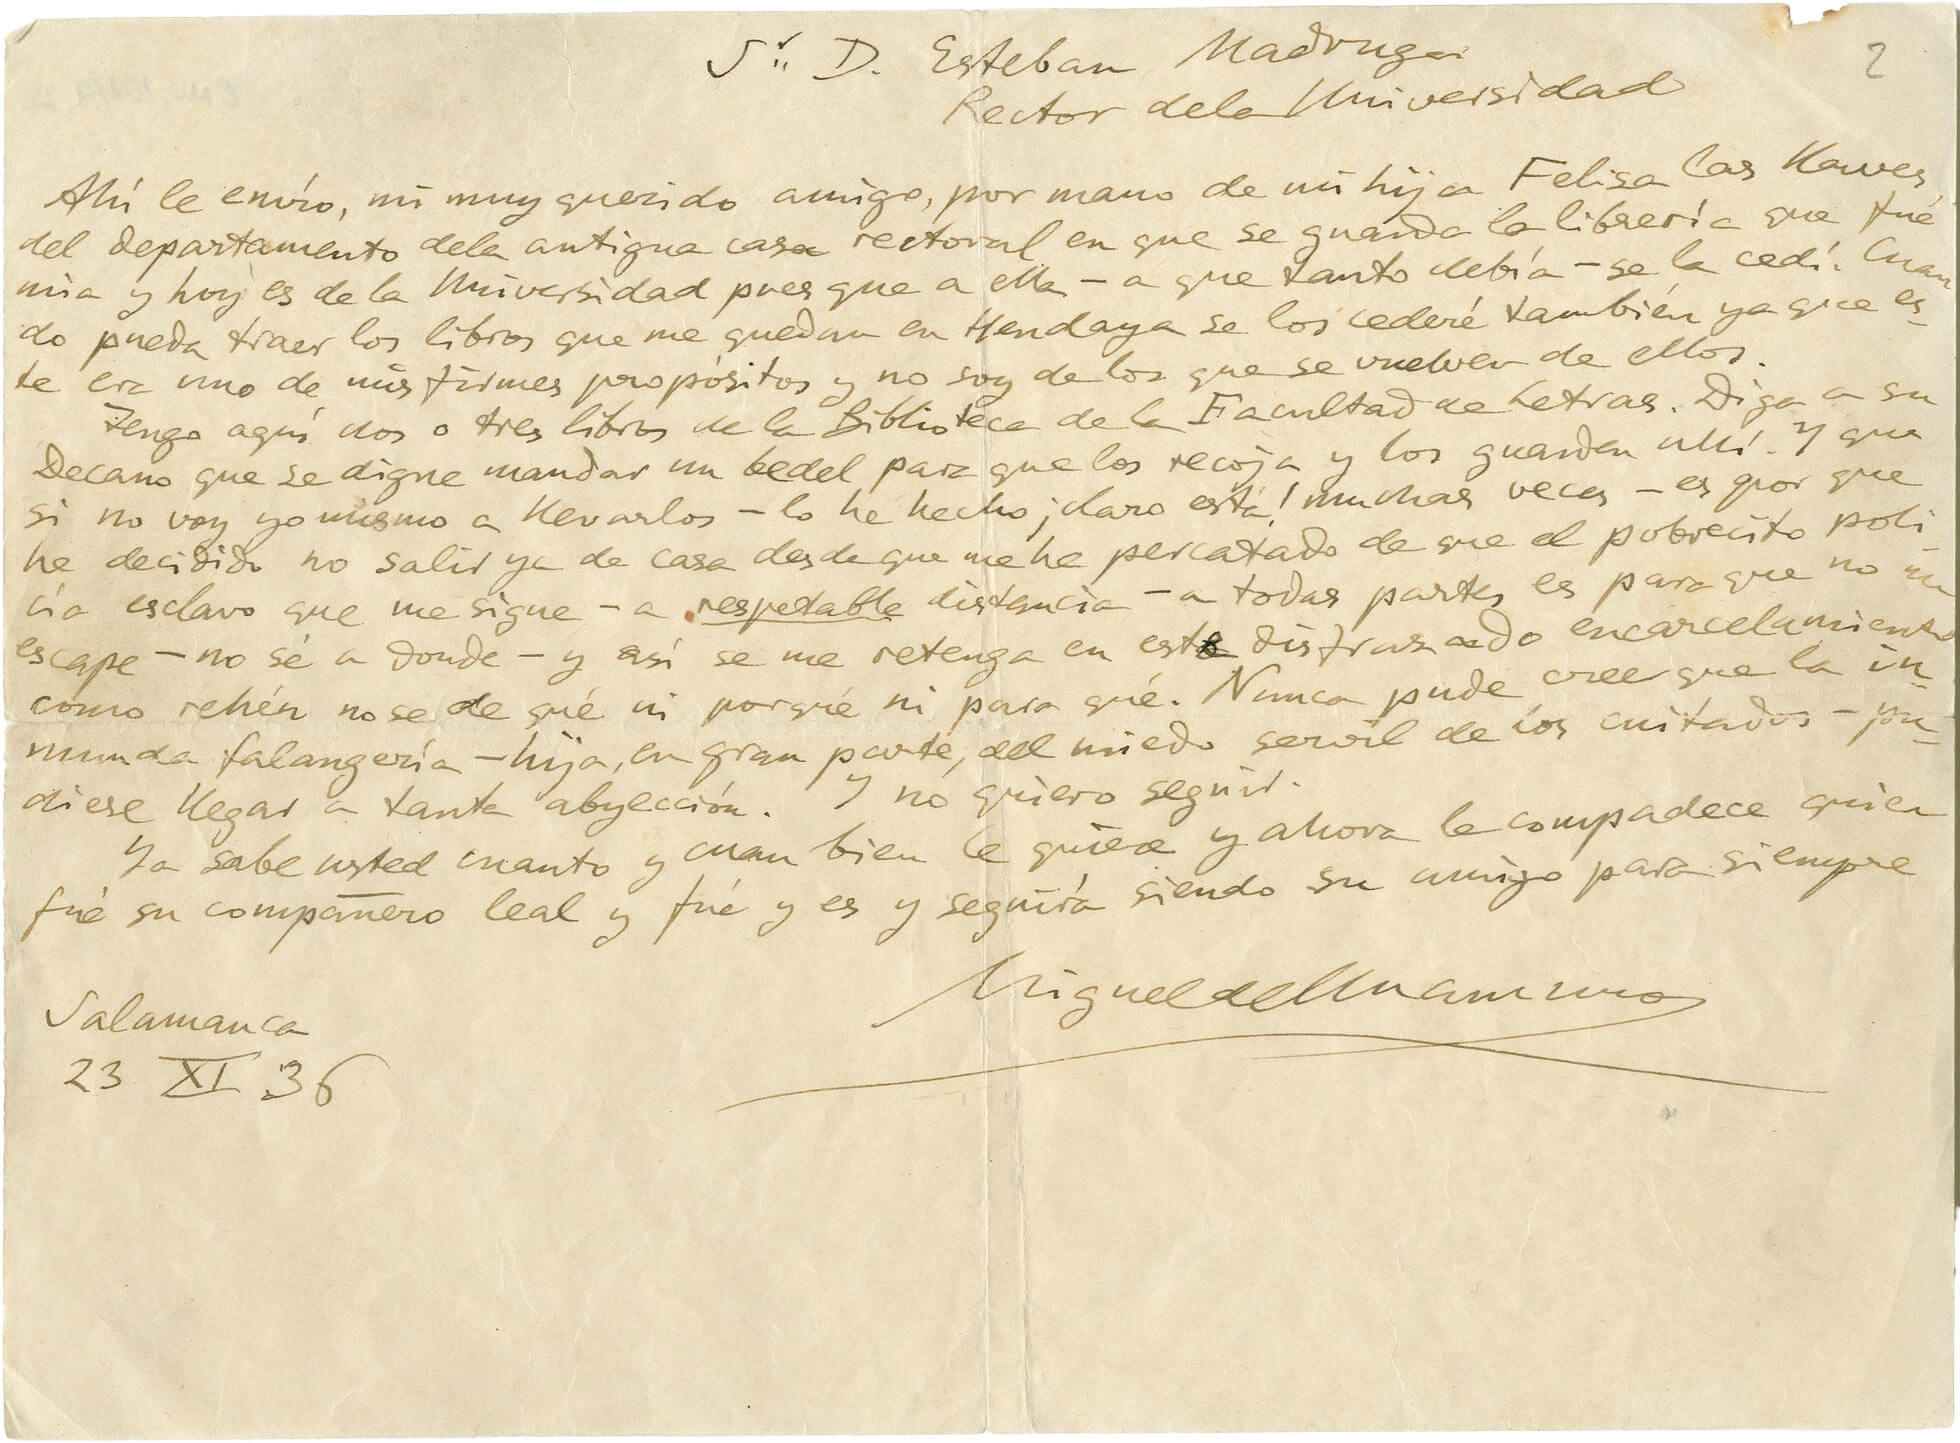 Sr. D. Esteban Madruga
Rector dela Universidad
2
Ahí le envío, mi muy querido amigo, por mano de mi hija Felisa las llaves
del departamento dela antigua casa rectoral en que se guarda la librería que fué
mia y hoy es de la Universidad pues que a ella – a que tanto debía – se la cedí. Cuan
do pueda traer los libros que me quedan en Hendaya se los cederé también ya que es-
te era uno de mis firmes propósitos y no soy de los que se vuelven de ellos.
Tengo aquí dos o tres libros de la Biblioteca de la Facultad de Letras. Diga a su
Decano que se digne mandar un bedel para que los recoja y los guarden allí. Y que
si no voy yo mismo a llevarlos – lo he hecho ¡claro está! muchas veces – es por que
he decidido no salir ya de casa desde que me he percatado de que el pobrecito poli-
cía esclavo que me sigue – a respetable distancia – a todas partes es para que no me
escape – no sé a donde – y así se me retenga en este disfrazado encarcelamiento
como rehén no se de qué ni porqué ni para qué. Nunca pude creer que la in-
munda falangería – hija, en gran parte, del miedo servil de los cuitados – pu-
diese llegar a tanta abyección. Y no quiero seguir.
Ya sabe usted cuanto y cuan bien le quiere y ahora le compadece quien
fué su compañero leal y fué y es y seguirá siendo su amigo para siempre
Miguel de Unamuno
Salamanca
23 XI 36